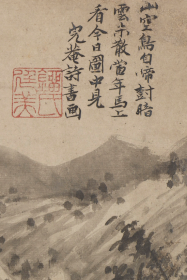 山空鳥自啼對暗
雲未散當年馬上
看今日圖中見
完菴詩書画